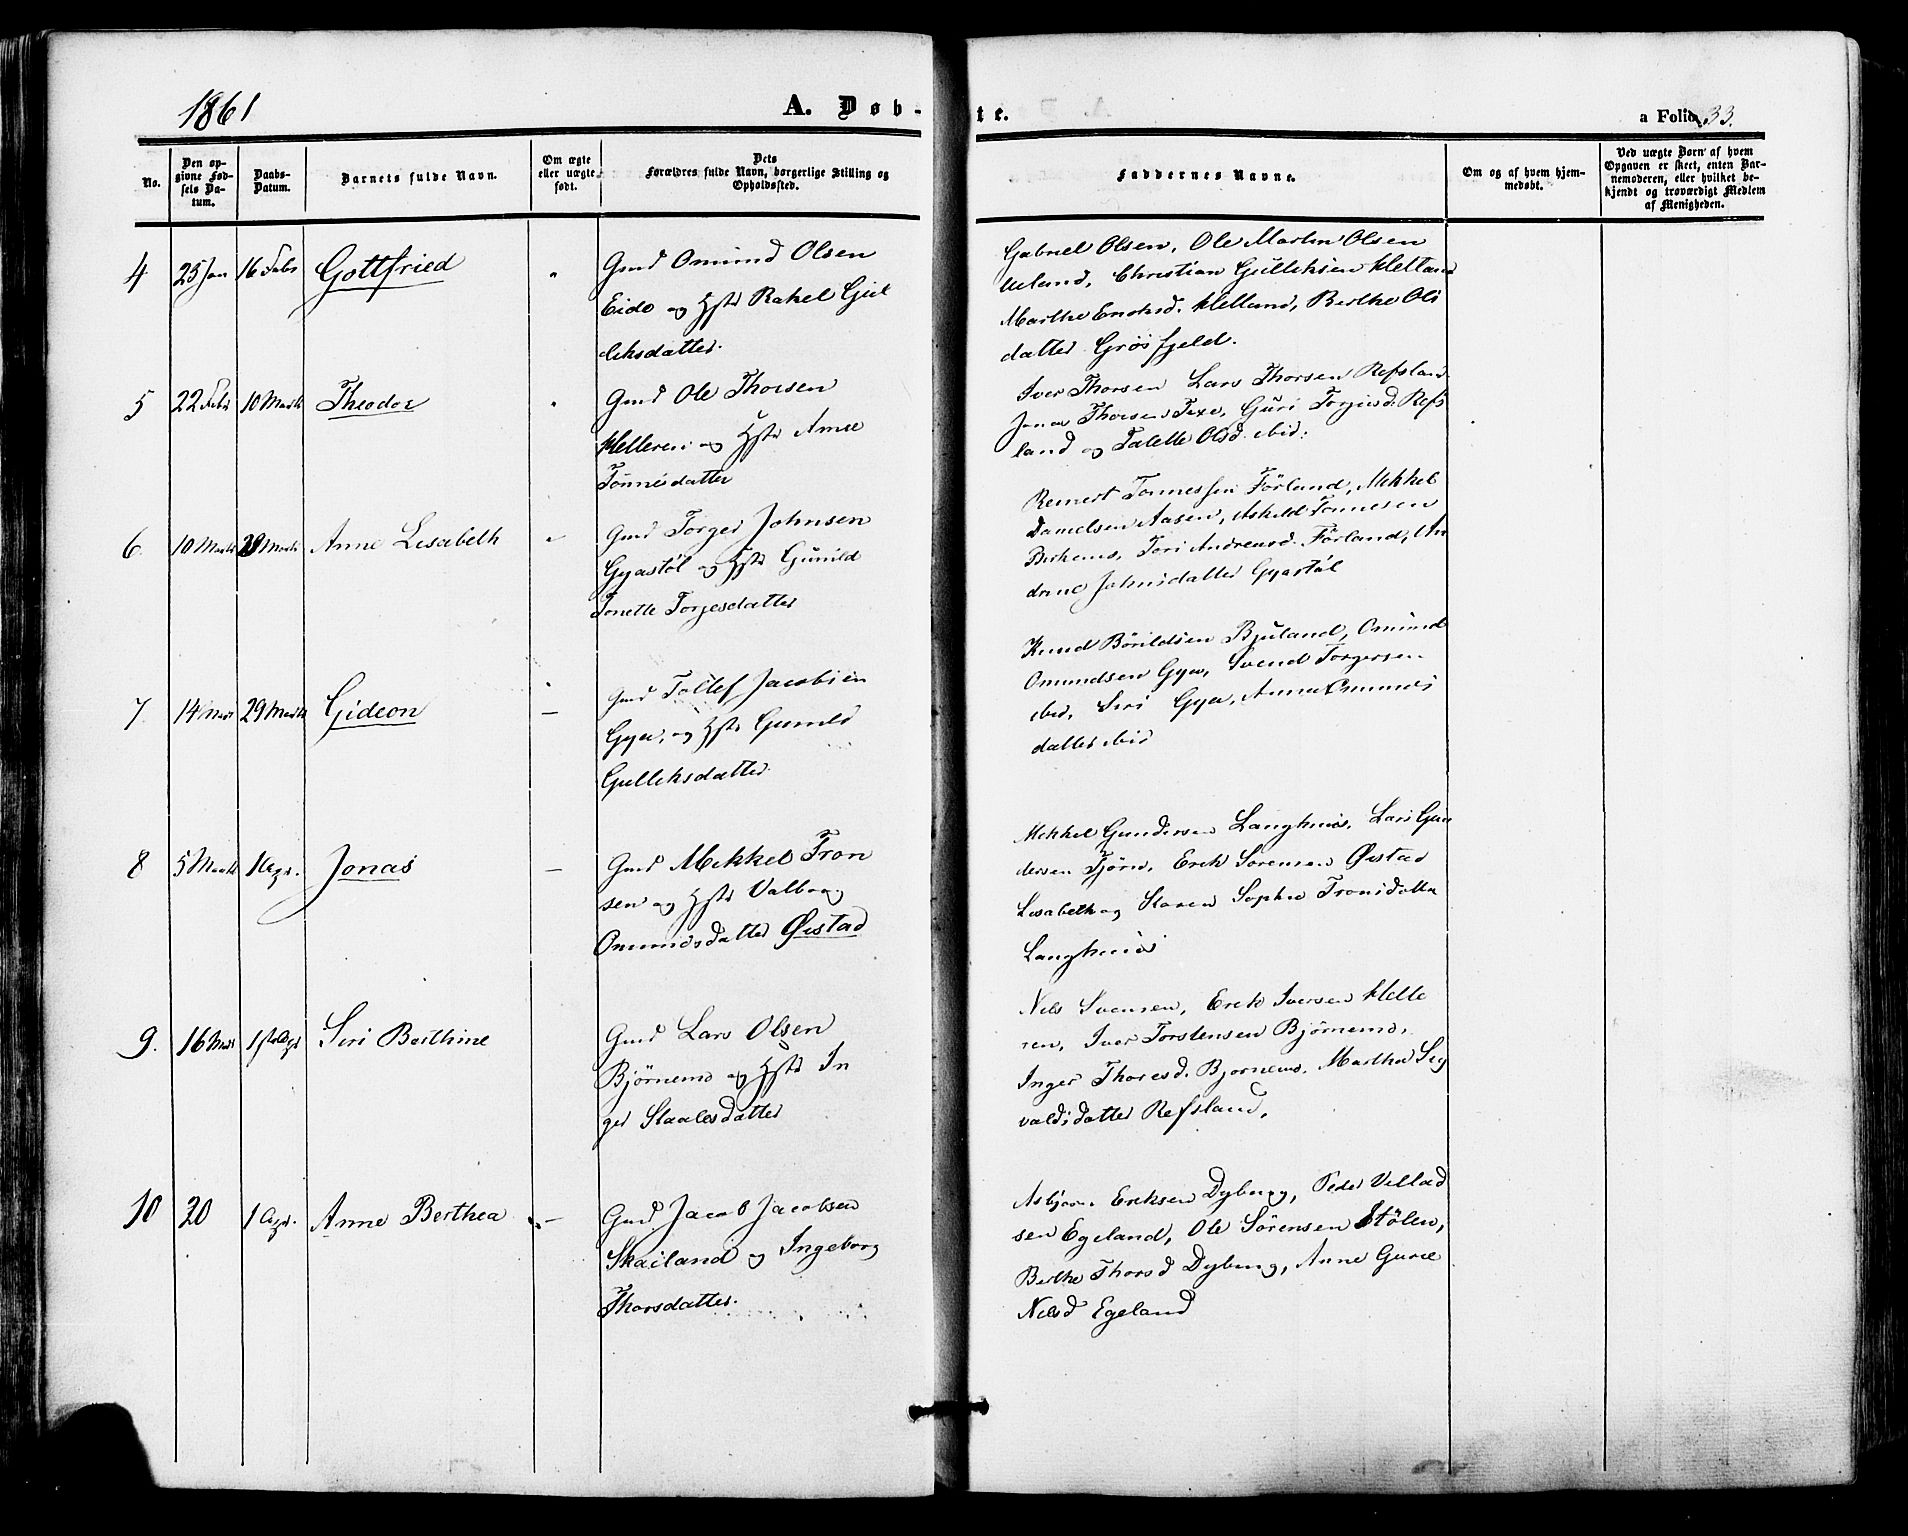 1861
A. Døb-
te.
a Folio 33.
No.
Den op-
givne Fød-
sels Da-
tum.
Daabs-
Datum.
Barnets fulde Navn.
Om ægte
eller uægte
født.
Dets
Forældres fulde Navn, borgerlige Stilling og
Opholdssted.
Faddernes Navne.
Om og af hvem hjem-
medøbt.
Ved uægte Børn af hvem
Opgaven er skeet, enten Bar-
nemoderen, eller hvilket be-
kjendt og troværdigt Medlem
af Menigheden.
4 25 Jan 16 Febr Gottfried
Gmd Omund Olsen
Eide og Hstr Rakel Gul
leksdatter.
Gabriel Olsen, Ole Martin Olsen
Ueland, Christian Gulleksen Helland
Marthe Enoksd. Helland, Berthe Ols
datter Grøsfjeld.
5 22 Febr 10 Marts Theodor
Gmd Ole Thorsen
Helleren og Hstr Anne
Tönnesdatter
Iver Thorsen Lars Thorsen Refsland
Jonas Thorsen Texe, Guri Torjusd. Refs
land og Talette Olsd. ibid:
6 10 Marts Marts Anne Lisabeth
Gmd Torger Johnsen
Gyastøl og Hstr Gunild
Tonette Torgesdatter
Reinert Tonnessen Förland, Mikkel
Danielsen Aasen, Askild Tonnesen
Tori Andreasd. Förland, An
drine Johnsdatter Gyastøl
7 14 Mart 29 Marts Gideon
Gmd Tollef Jacobsen
Gya, og Hstr Gunild
Gulleksdatter
Knud Bórildsen Bjuland, Omund
Omundsen Gya, Svend Torgersen
ibid, Siri Gya, Anna Omunds
datter ibid
8 5 Marts 1 Apr. Jonas
Gmd Mikkel Tron
sen og Hstr Valborg
Omundsdatter Øistad
Mikkel Gundersen Langhuus, Lars Gun
dersen Tjörn, Erik Sørensen Øistad
Lisabeth og Karen Sophie Tronsdatter
Langhuus
9. 16 Mart 1ste Apr Siri Berthine
Gmd Lars Olsen
Bjørnemo og Hstr In
ger Staalesdatter
Nils Svensen, Erik Iversen Helle
ren, Iver Torstensen Bjørnemo,
Inger Thoresd. Bjørnemo, Martha Sig
valdsdatter Refsland,
10 20 1 Apr. Anne Berthea
Gmd Jacob Jacobsen
Skailand og Ingeborg
Thorsdatter.
Asbjørn Eriksen Dybing, Peder Villad
sen Egeland, Ole Sørensen Stølen,
Berthe Thorsd Dybing, Anne Gurie
Nilsd Egeland